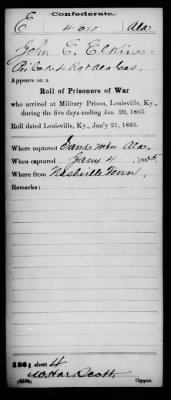 Confederate.
E 4 Cav Ala
John E. Elkins
Pri Co. 4 Rgt Ala Cav.
Appears on a
Roll of Prisoners of War
who arrived at Military Prison, Louisville, Ky.,
during the five days ending Jan. 20, 1865.
Roll dated Louisville, Ky., Jan'y 21, 1865.
Where captured Sand Mtn Ala.
When captured Jany 4, 1865
Where from Nashville Tenn.
Remarks:
sheet 4
Copyist.